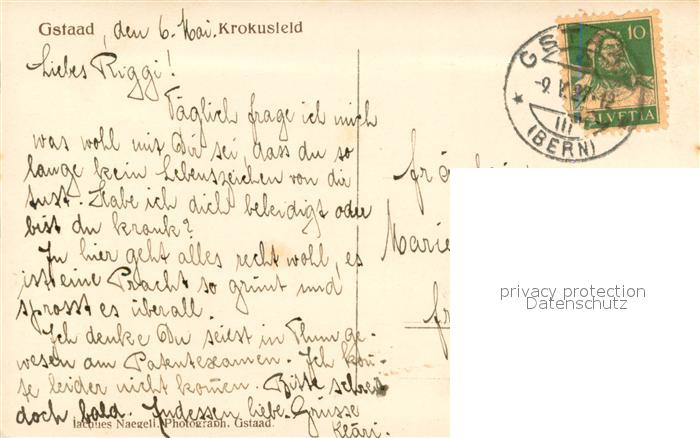 Gstaad, den 6. Mai. Krokusfeld
Liebes Riggi!
Täglich frage ich mich
was wohl mit Dir sei, dass du so
lange kein Lebenszeichen von dir
tust. Habe ich dich beleidigt oder
bist du krank?
In hier geht alles recht wohl, es
ist eine Pracht so grünt und
sprosst es überall.
Ich denke Du seiest in Thun ge-
wesen am Patentexamen. Ich kon̄-
te leider nicht kom̄en. Bitte schreib
doch bald. Indessen liebe Grüsse
Kläri.
Jacques Naegeli, Photograph. Gstaad.
10
HELVETIA
GSTAAD
-9.V.
III
(BERN)
Marie
privacy protection
Datenschutz